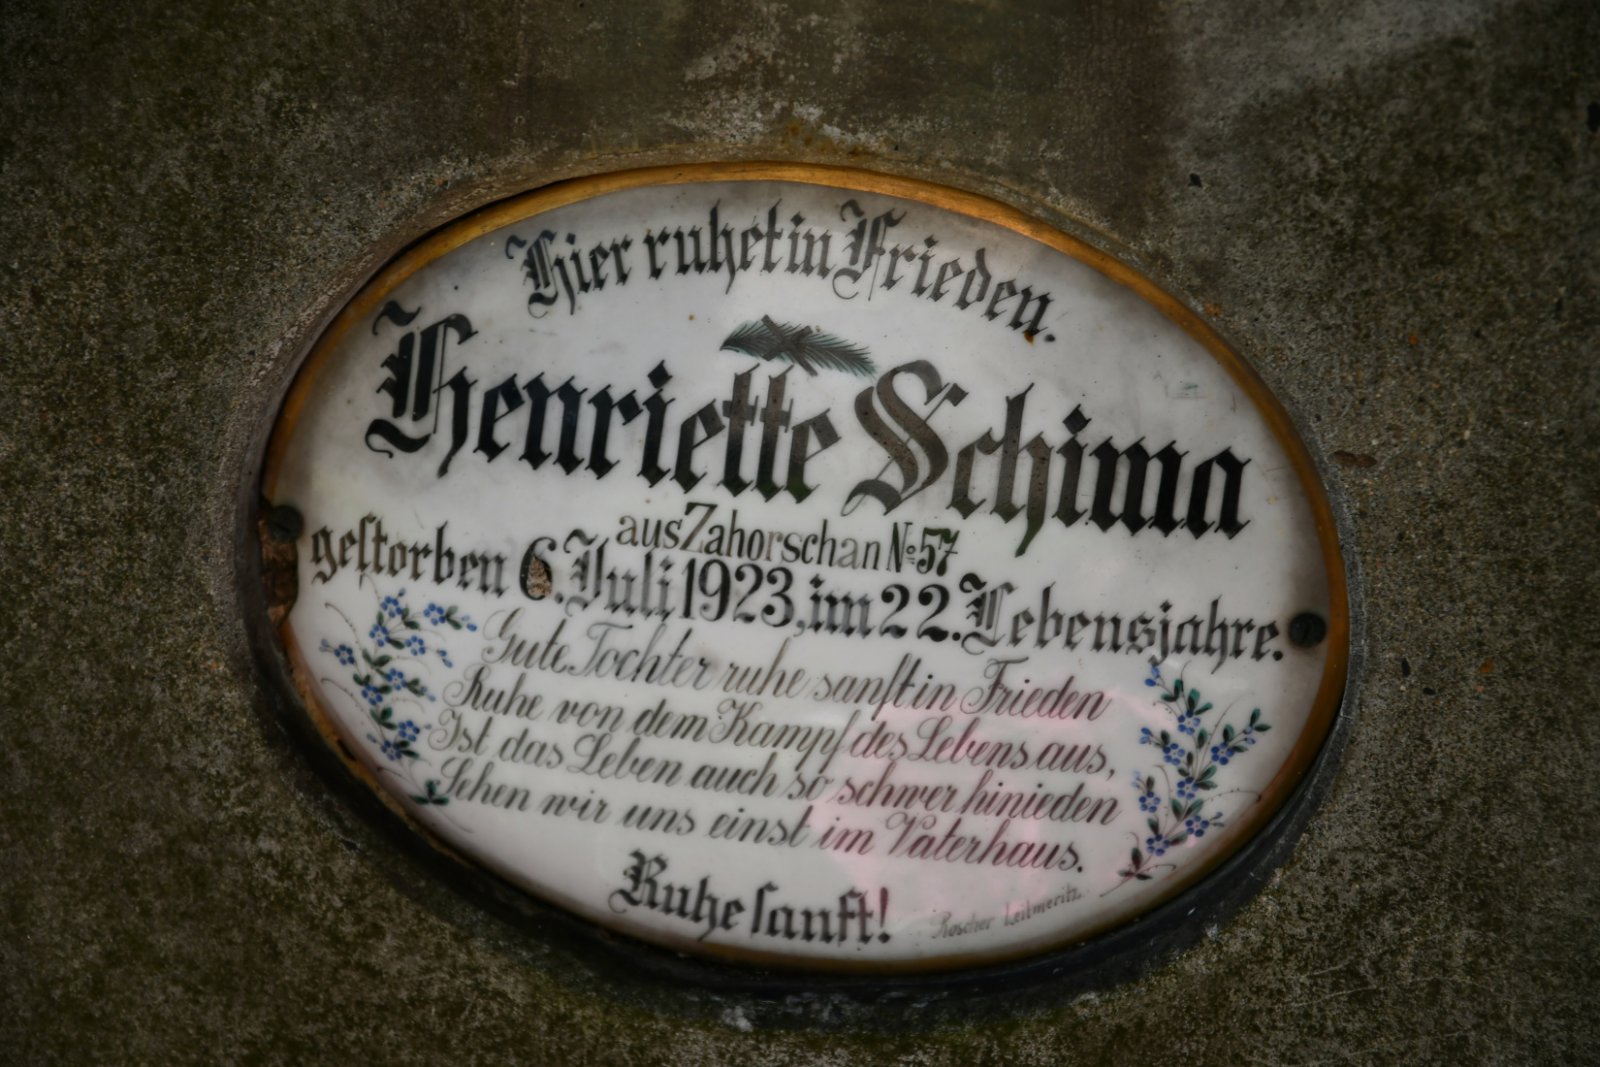 Hier ruhet in Frieden.
Henriette Schima
aus Zahorschan No 57
gestorben 6. Juli 1923, im 22. Lebensjahre.
Gute Tochter ruhe sanft in Frieden
Ruhe von dem Kampf des Lebens aus,
Ist das Leben auch so schwer hinieden
Sehen wir uns einst im Vaterhaus.
Ruhe sanft!
Roscher Leitmeritz.